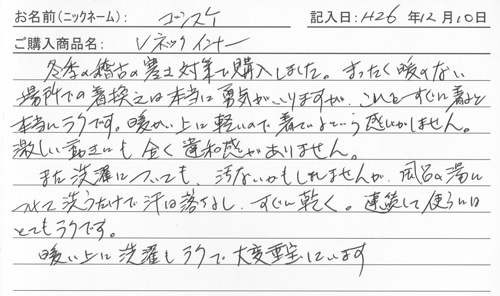 お名前(ニックネーム): ゴンスケ 記入日: H26年12月10日
ご購入商品名: Vネックインナー
冬季の稽古の寒さ対策で購入しました。まったく暖のない
場所での着換えは本当に勇気がいりますが、これをすぐに着ると
本当にラクです。暖かい上に軽いので着ているという感じがしません。
激しい動きにも全く違和感がありません。
また洗濯についても、汚ないかもしれませんが、風呂の湯に
つけて洗うだけで汗は落ちるし、すぐに乾く。連続して使うには
とてもラクです。
暖い上に洗濯もラクで大変重宝しています